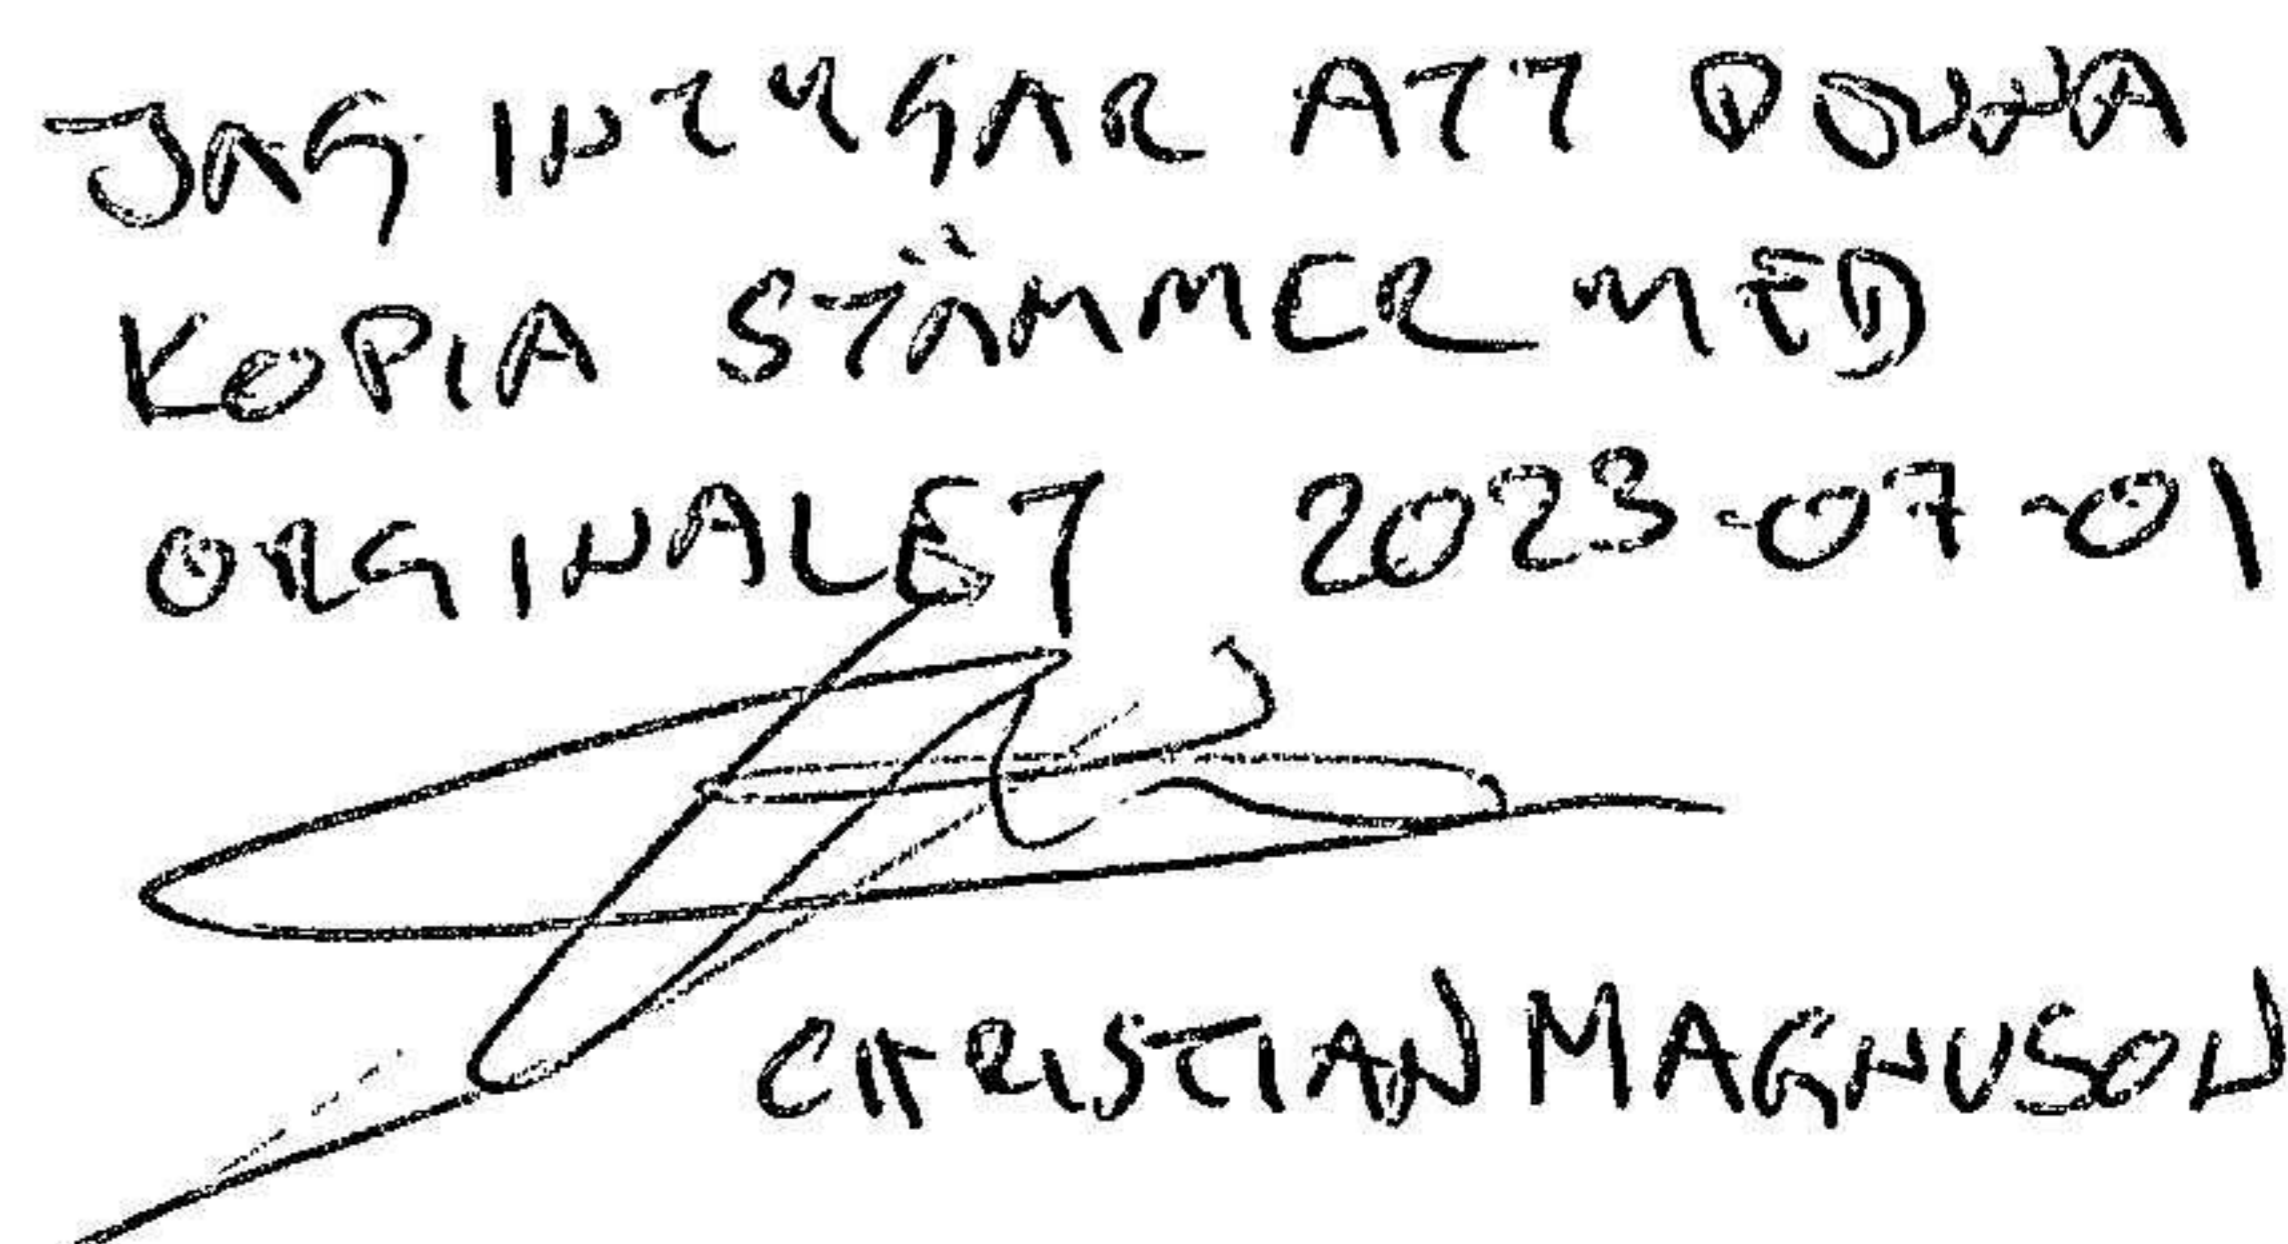 JAG INTYGAR ATT DENNA
KOPIA STÄMMER MED
ORGINALET 2023-07-01
CHRISTIAN MAGNUSON